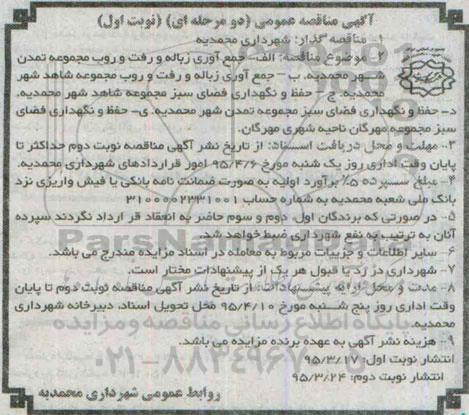 آگهی مناقصه عمومی (دو مرحله ای) (نوبت اول)
۱- مناقصه گذار: شهرداری محمدیه
۲- موضوع مناقصه: الف- جمع آوری زباله و رفت و روب مجموعه تمدن
شهر محمدیه. ب- جمع آوری زباله و رفت و روب مجموعه شاهد شهر
محمدیه. ج- حفظ و نگهداری فضای سبز مجموعه شاهد شهر محمدیه.
د- حفظ و نگهداری فضای سبز مجموعه تمدن شهر محمدیه. ی- حفظ و نگهداری فضای
سبز مجموعه مهرگان ناحیه شهری مهرگان.
۳- مهلت و محل دریافت اسناد: از تاریخ نشر آگهی مناقصه نوبت دوم حداکثر تا
پایان وقت اداری روز یک شنبه مورخ ۹۵/۴/۶ امور قراردادهای شهرداری محمدیه.
۴- مبلغ سپرده ۵٪ برآورد اولیه به صورت ضمانت نامه بانکی یا فیش واریزی نزد
بانک ملی شعبه محمدیه به شماره حساب ۳۱۰۰۰۰۲۲۳۱۰۰۱
۵- در صورتی که برندگان اول، دوم و سوم حاضر به انعقاد قرار داد نگردند سپرده
آنان به ترتیب به نفع شهرداری ضبط خواهد شد.
۶- سایر اطلاعات و جزییات مربوط به معامله در اسناد مزایده مندرج می باشد.
۷- شهرداری در رد یا قبول هر یک از پیشنهادات مختار است.
۸- مدت و محل ارایه پیشنهادات: از تاریخ نشر آگهی مناقصه نوبت دوم تا پایان
وقت اداری روز پنج شنبه مورخ ۹۵/۴/۱۰ محل تحویل اسناد، دبیرخانه شهرداری
محمدیه.
۹- هزینه نشر آگهی به عهده برنده مزایده می باشد.
انتشار نوبت اول: ۹۵/۳/۱۷
انتشار نوبت دوم: ۹۵/۳/۲۴
روابط عمومی شهرداری محمدیه
ParsNamadData
پایگاه اطلاع رسانی مناقصه و مزایده
۰۲۱-۸۸۳۴۹۶۷۰